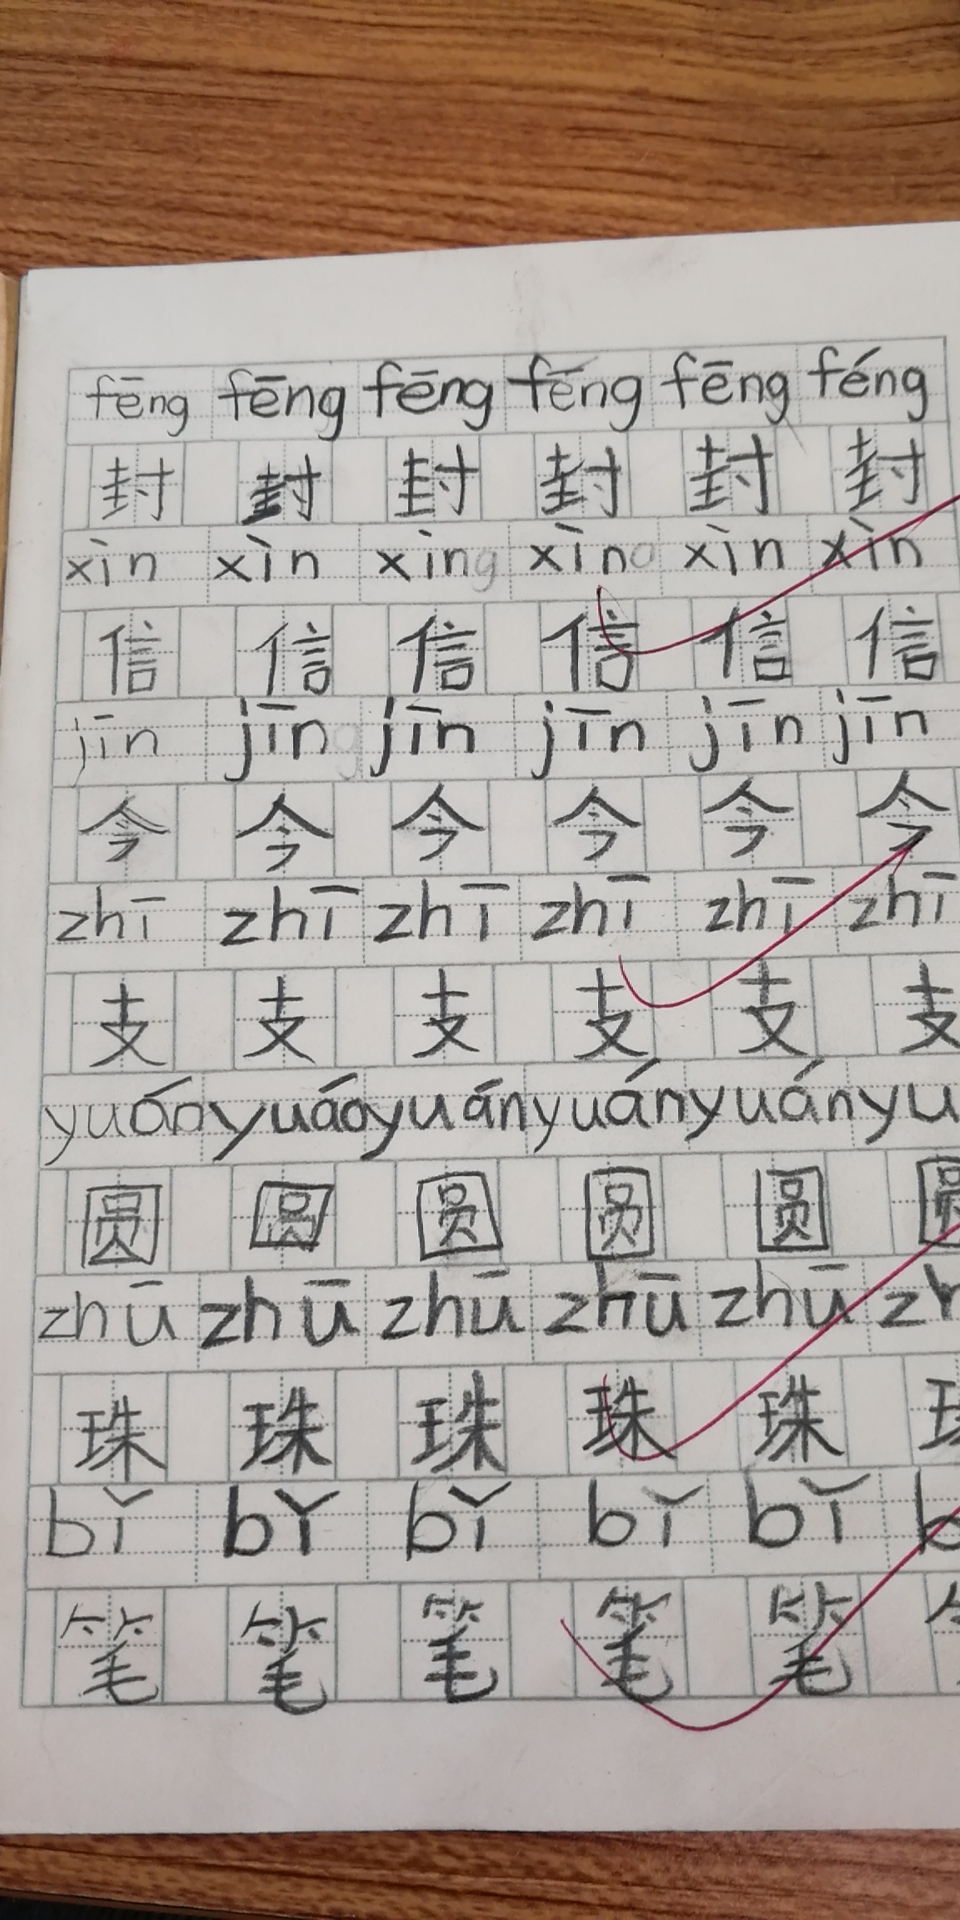 fēng fēng fēng fēng fēng féng
封 封 封 封 封 封
xìn xìn xìng xìng xìn xìn
信 信 信 信 信 信
jīn jīng jīn jīn jīn jīn
今 今 今 今 今 今
zhī zhī zhī zhī zhī zhī
支 支 支 支 支 支
yuáo yuáo yuán yuán yuán yu
圆 圆 圆 圆 圆 圆
zhū zhū zhū zhū zhū zh
珠 珠 珠 珠 珠
bǐ bǐ bǐ bǐ bǐ b
笔 笔 笔 笔 笔